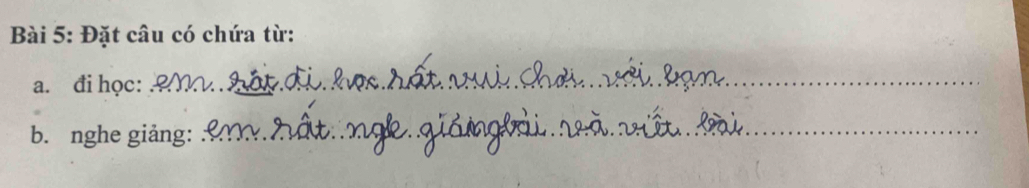 Bài 5: Đặt câu có chứa từ:
a. đi học: em rất đi học rất vui chơi với bạn
b. nghe giảng: em rất nge giảng bài và viết bài